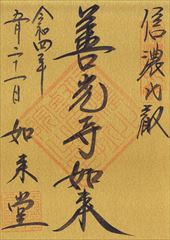 信濃比叡
善光寺如来
令和四年
五月二十一日
如来堂